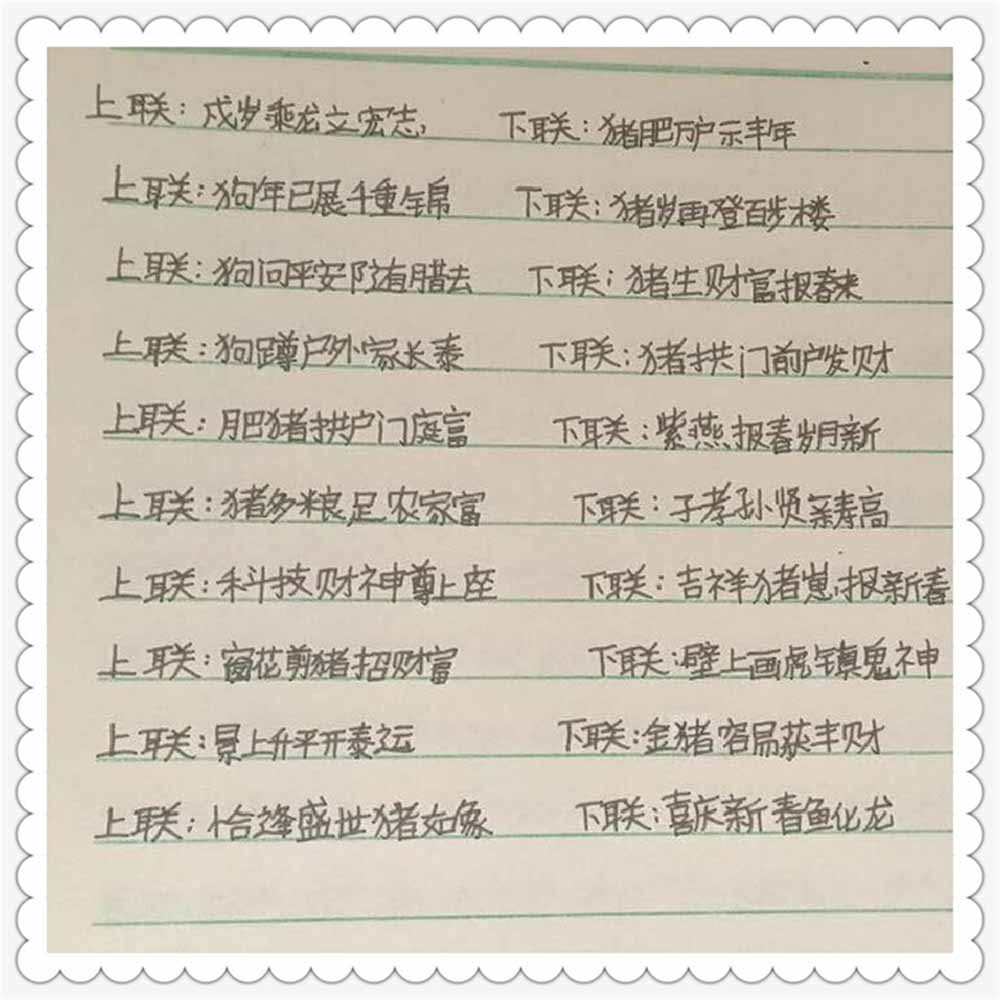 上联：戌岁乘龙立宏志， 下联：猪肥万户示丰年
上联：狗年已展千重锦 下联：猪岁再登百步楼
上联：狗问平安随腊去 下联：猪生财富报春来
上联：狗蹲户外家长泰 下联：猪拱门前户发财
上联：肥猪拱户门庭富 下联：紫燕报春岁月新
上联：猪多粮足农家富 下联：子孝孙贤亲寿高
上联：科技财神尊上座 下联：吉祥猪崽报新春
上联：窗花剪猪招财富 下联：壁上画虎镇鬼神
上联：景上升平开泰运 下联：金猪容易获丰财
上联：恰逢盛世猪如象 下联：喜庆新春鱼化龙